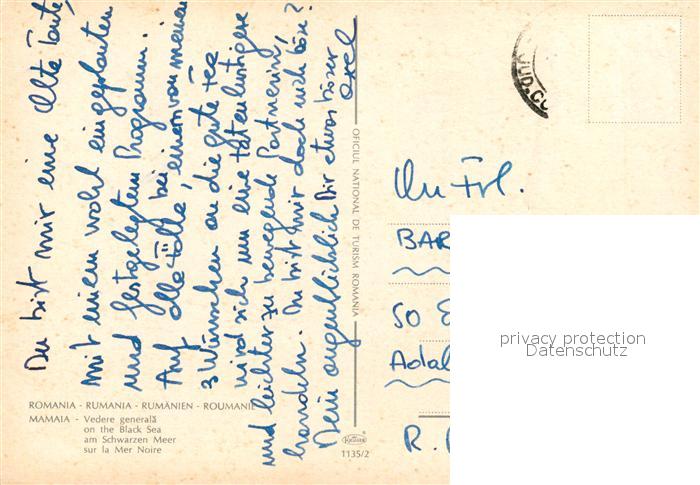 Du bist mir eine alte Tante
mit einem wohl eingeplanten
und festgelegtem Programm.
Auf alle Fälle, bei einem von meinen
3 Wünschen an die gute Fee
wird sich um eine tatenlustigere
und leichter zu bewegende Partnerin,
handeln. Du bist mir doch nicht böse?
Dein augenblicklich Dir etwas böser
Axel
ROMANIA - RUMANIA - RUMÄNIEN - ROUMANIE
MAMAIA - Vedere generală
on the Black Sea
am Schwarzen Meer
sur la Mer Noire
OFICIUL NATIONAL DE TURISM ROMANIA
1135/2
JUD.CO
An Frl.
BAR
50
Adal
R.
privacy protection
Datenschutz